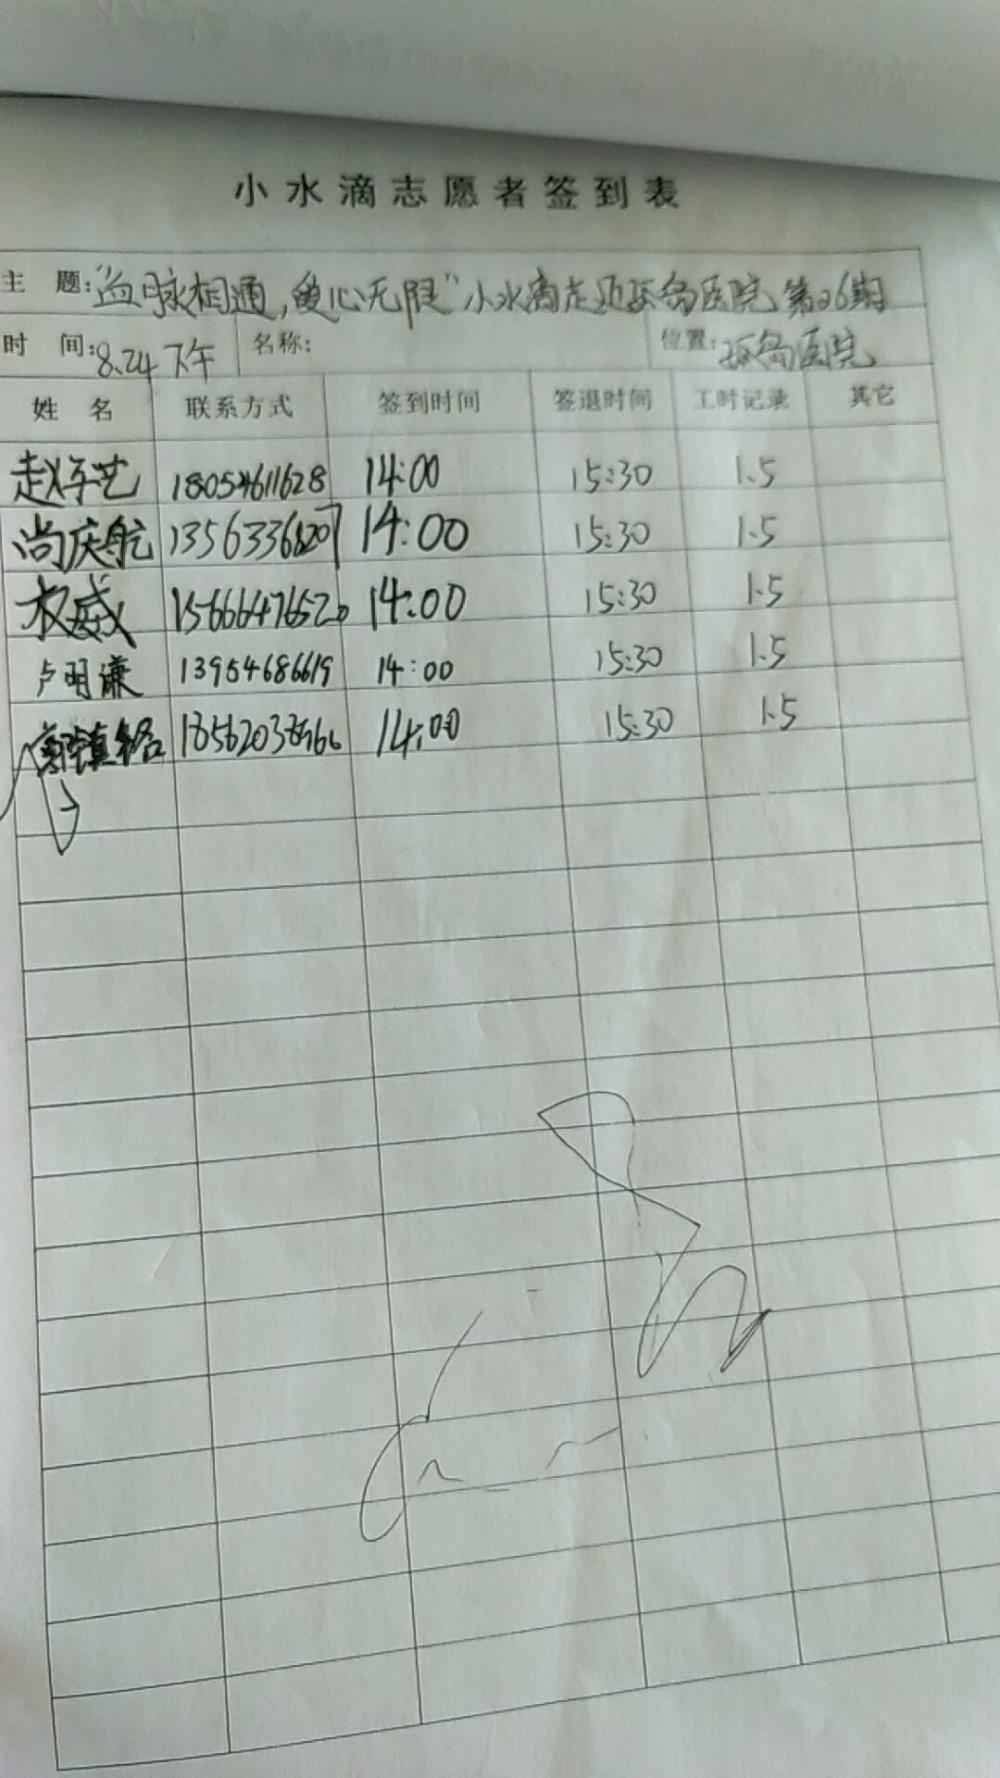 小水滴志愿者签到表
主 题:"血脉相通,爱心无限"小水滴走进孤岛医院第26期
时 间:8.24下午 名称: 位置:孤岛医院
姓 名 联系方式 签到时间 签退时间 工时记录 其它
赵军艺 18054611628 14:00 15:30 1.5
尚庆航 13563368207 14:00 15:30 1.5
权威 15666476520 14:00 15:30 1.5
卢明谦 13954686619 14:00 15:30 1.5
14:00 15:30 1.5